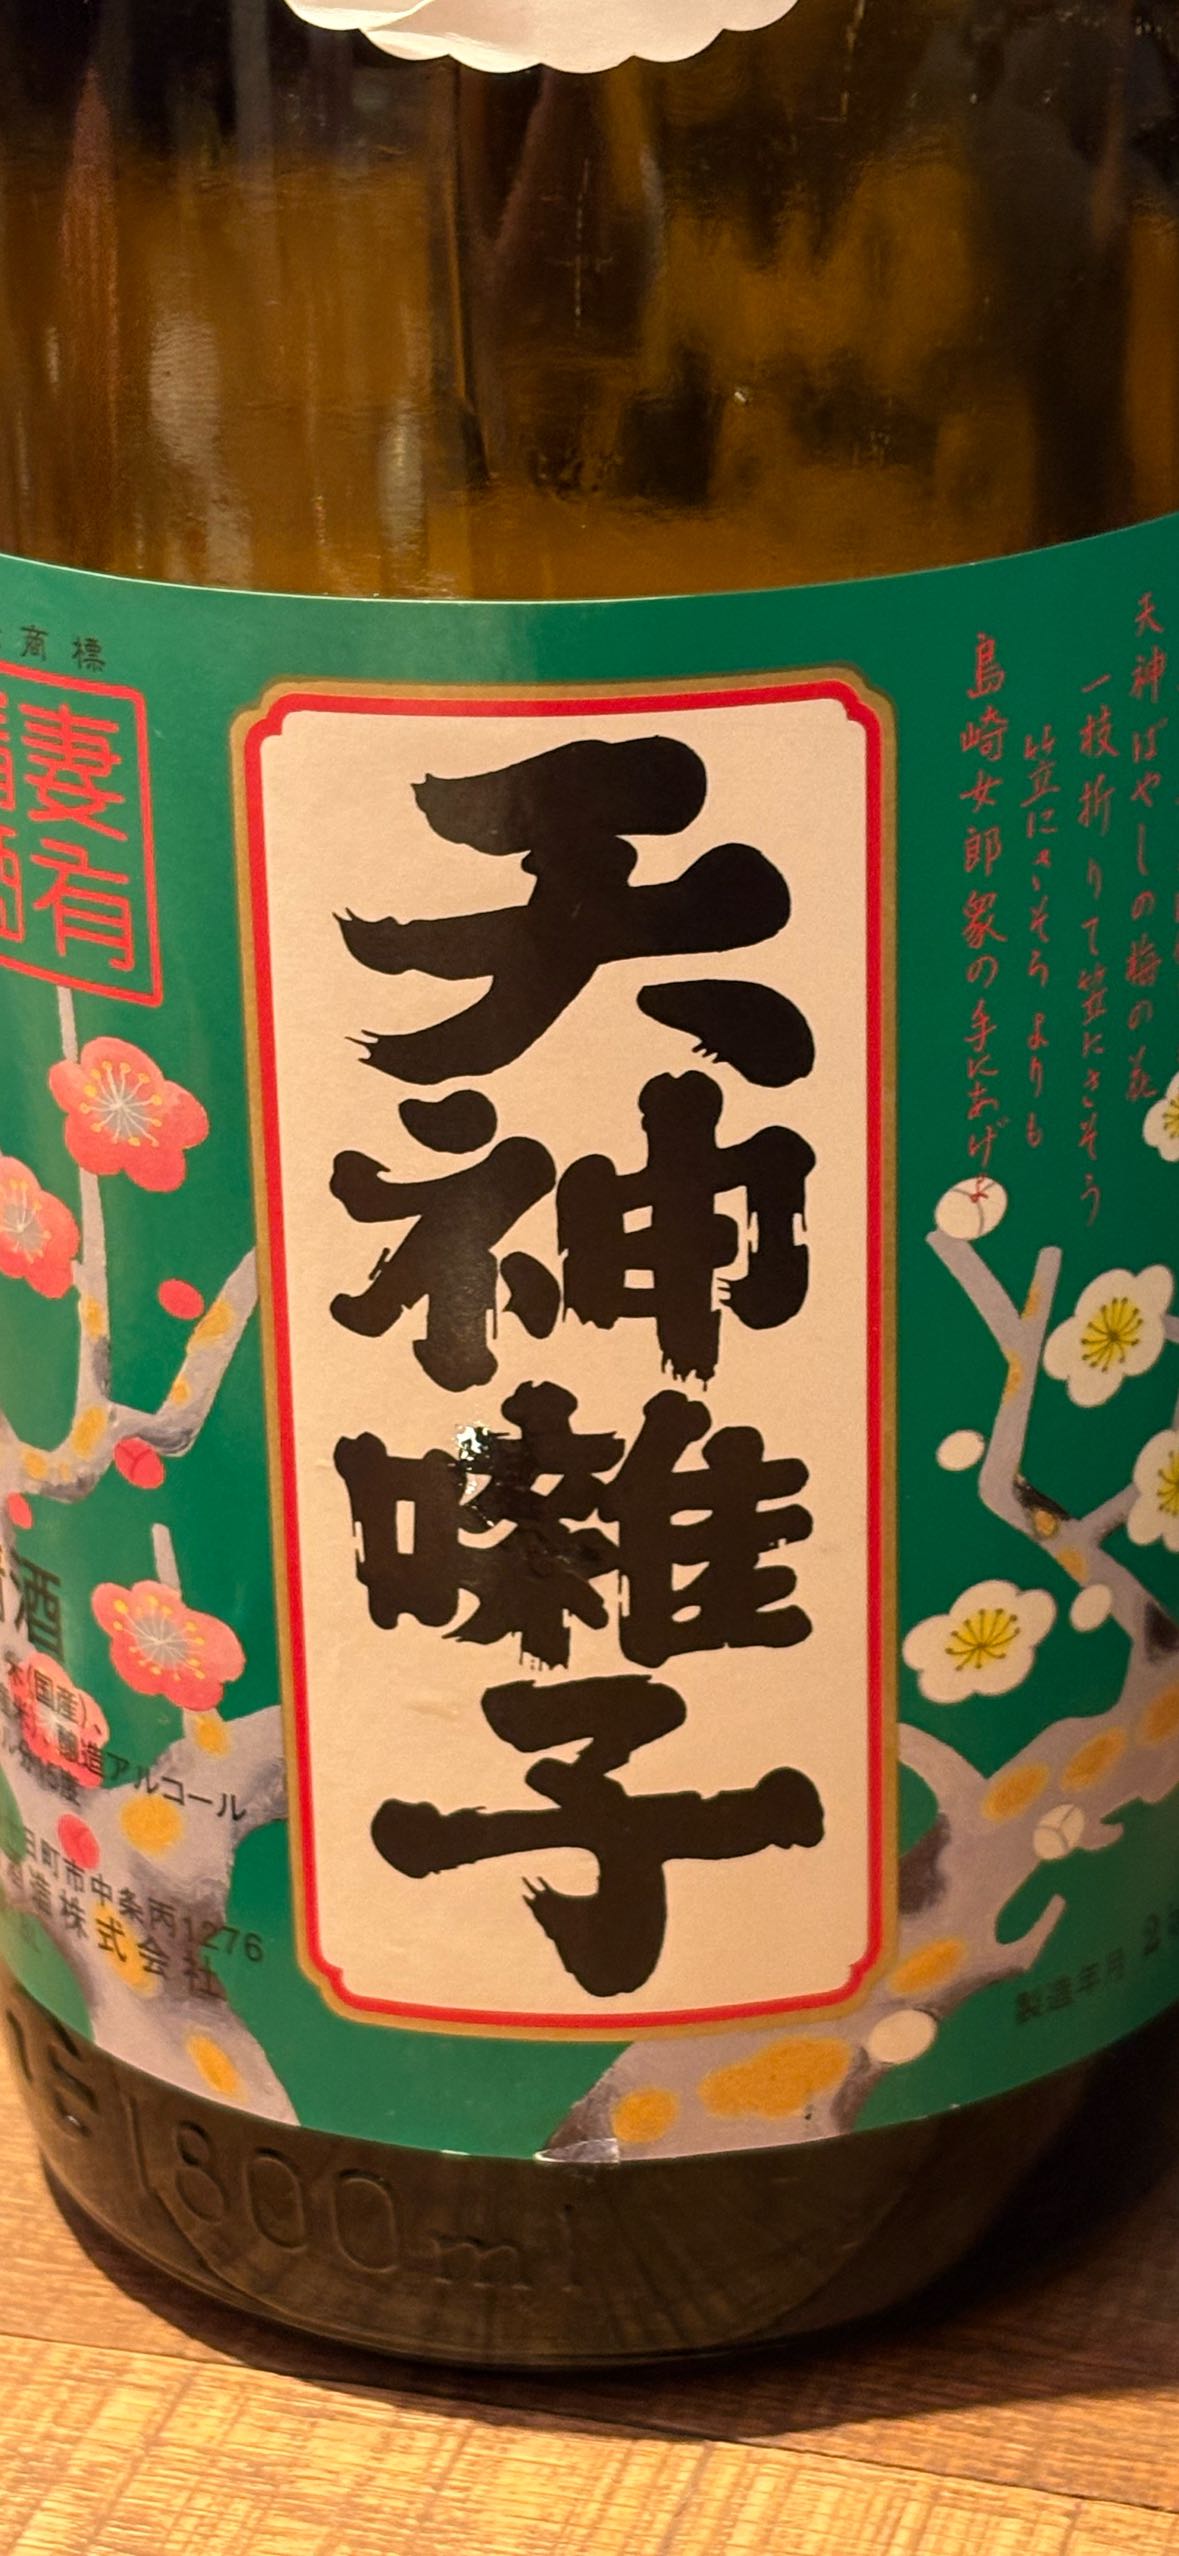 商標
妻有
天神囃子
天神ばやしの梅の花
一枝折りて笠にさそう
笠にさゝそうよりも
島崎女郎衆の手にあげよ
酒
米(国産)、
醸造アルコール
日町市中条丙1276
造株式会社
製造年月
1800ml